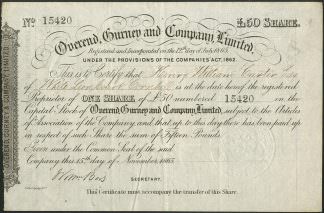 No. 15420 £50 SHARE.
Overend, Gurney and Company, Limited.
Registered and Incorporated on the 12th day of July 1865.
UNDER THE PROVISIONS OF THE COMPANIES ACT, 1862.
This is to Certify that William
of is at the date hereof the registered
Proprietor of ONE SHARE of £50 numbered 15420 in the
Capital Stock of Overend, Gurney and Company, Limited, subject to the Articles
of Association of the Company and that up to this day there has been paid up
in respect of such Share the sum of Fifteen Pounds.
Given under the Common Seal of the said
Company this 15th day of November 1865.
SECRETARY.
This Certificate must accompany the transfer of this Share.